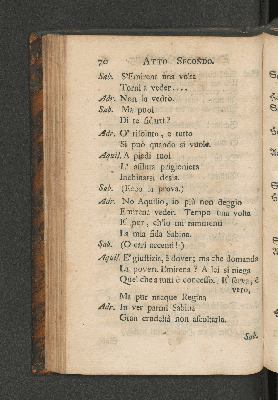 70 ATTO SECONDO.
Sab. S'Emirena una volta
Torni a veder....
Adr. Non la vedrò.
Sab. Ma puoi
Di te fidarti?
Adr. O' risoluto, e tutto
Si può quando si vuole.
Aquil. A piedi tuoi
L' afflitta prigioniera
Inchinarsi desia.
Sab. (Ecco la prova.)
Adr. No Aquilio, io più non deggio
Emirena veder. Tempo una volta
E' pur, ch'io mi rammenti
La mia fida Sabina.
Sab. (O cari accenti!)
Aquil. E' giustizia, è dover; ma che domanda
La povera Emirena? A lei si niega
Quel che a tutti è concesso. E' serva, è
vero,
Ma pur nacque Regina
Adr. In ver parmi Sabina
Gran crudeltà non ascoltarla.
Sab.